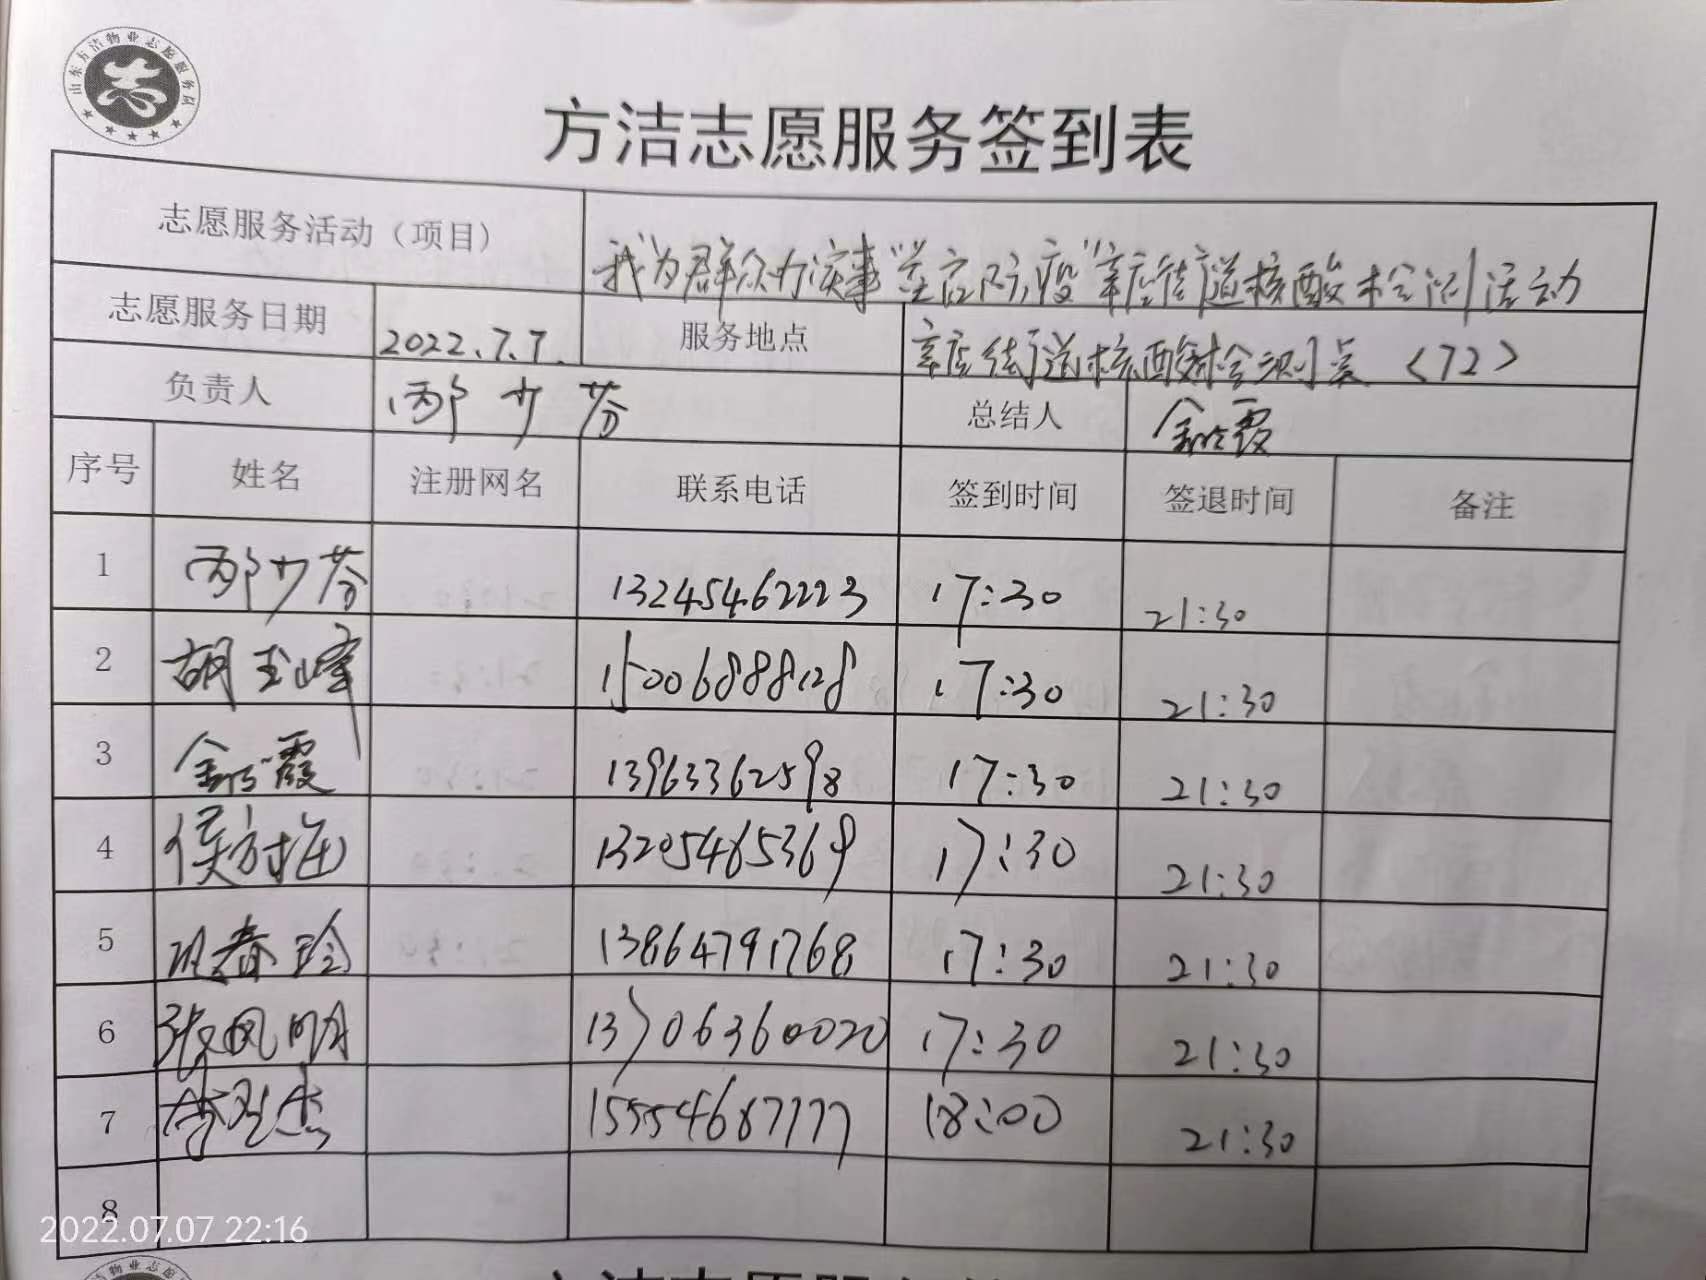 山东方洁物业志愿服务岗
方洁志愿服务签到表
志愿服务活动（项目） 我为群众办实事"笃行防疫"辛店街道核酸检测活动
志愿服务日期 2022.7.7. 服务地点 辛店街道核酸检测点 <72>
负责人 邴少芬 总结人 霞
序号 姓名 注册网名 联系电话 签到时间 签退时间 备注
1 邴少芬 13245462223 17:30 21:30
2 胡玉峰 15006888128 17:30 21:30
3 霞 13963362598 17:30 21:30
4 侯方 13205465369 17:30 21:30
5 春玲 13864791768 17:30 21:30
6 张凤明 13706360020 17:30 21:30
7 杰 15554687777 18:00 21:30
8
2022.07.07 22:16
物业志愿
方洁志愿服务签